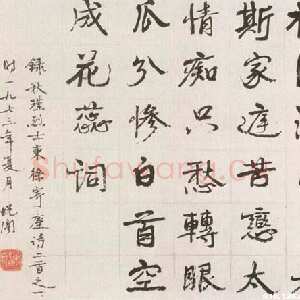 斯家庭苦戀太
情痴只愁轉眼
瓜分慘白首空
成花蕊詞
錄秋瑾烈士柬徐寄塵詩二首之一
時一九七三年夏月